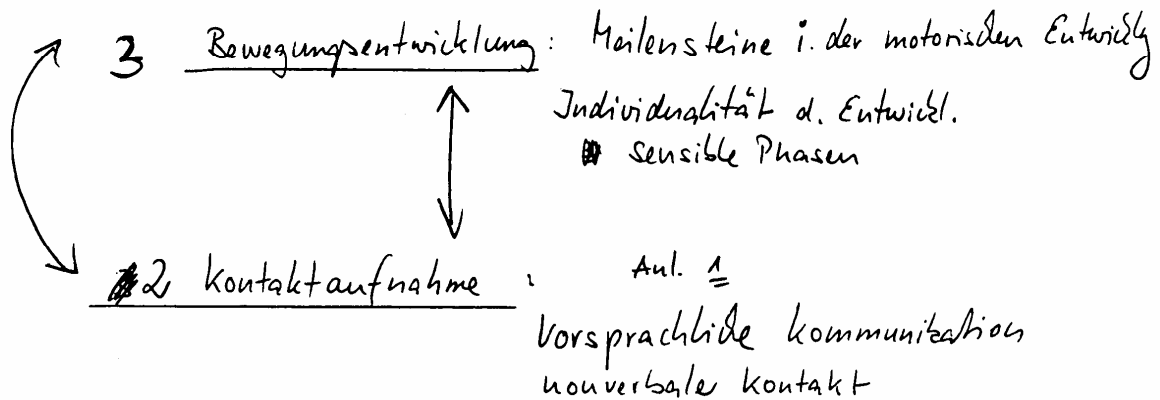 3 Bewegungsentwicklung: Meilensteine i. der motorischen Entwicklg
Individualität d. Entwickl.
sensible Phasen
2 Kontaktaufnahme : Anl. 1
Vorsprachliche Kommunikation
nonverbaler Kontakt